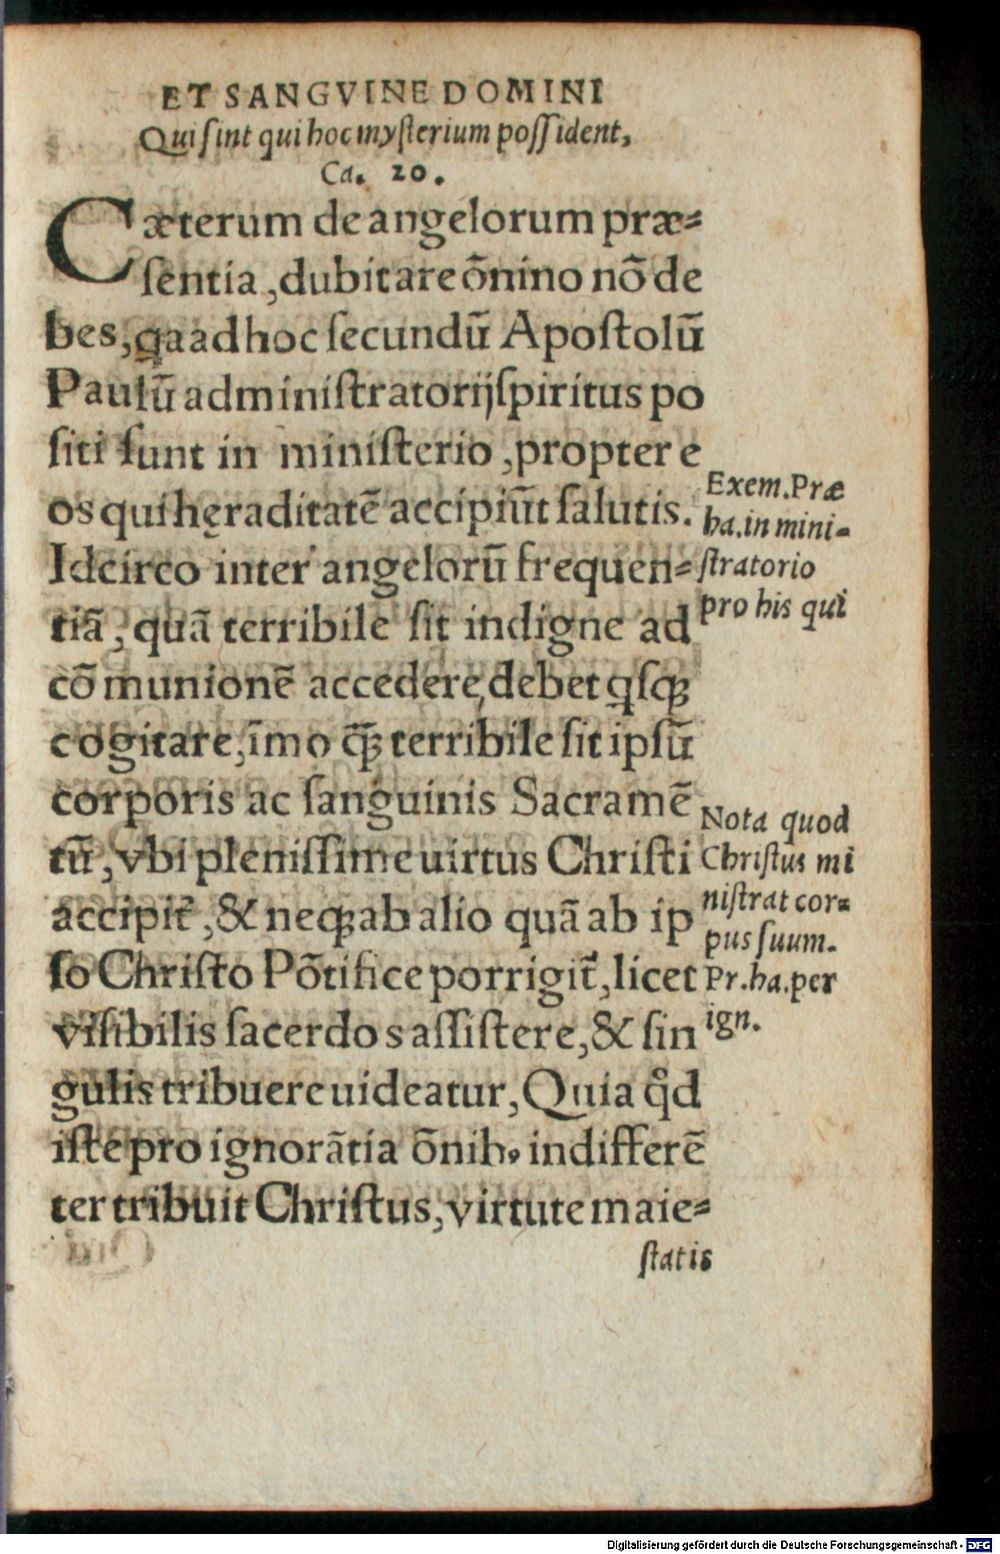 ET SANGVINE DOMINI
Qui ſint qui hoc myſterium poſſident,
Ca. 20.
Cæterum de angelorum præ⸗
ſentia, dubitare õnino nõ de
bes, qa ad hoc ſecundũ Apoſtolũ
Paulũ adminiſtratorij ſpiritus po
ſiti ſunt in miniſterio, propter e
os qui hęraditatẽ accipiũt ſalutis.
Idcirco inter angelorũ frequen⸗
tiã, quã terribile ſit indigne ad
cõmunionẽ accedere, debet qſqꝫ
cogitare, ĩmo q̃ꝫ terribile ſit ipſũ
corporis ac ſanguinis Sacramẽ
tũ, vbi pleniſſime uirtus Chriſti
accipit᷑, & neqꝫ ab alio quã ab ip
ſo Chriſto Põtifice porrigit᷑, licet
viſibilis ſacerdos aſſiſtere, & ſin
gulis tribuere uideatur, Quia qd̾
iſte pro ignorãtia õnibꝰ indifferẽ
ter tribuit Chriſtus, virtute maie⸗
ſtatis
Exem. Præ
ha. in mini⸗
ſtratorio
pro his qui
Nota quod
Chriſtus mi
niſtrat cor⸗
pus ſuum.
Pr. ha. per
ign.
Digitalisierung gefördert durch die Deutsche Forschungsgemeinschaft - DFG